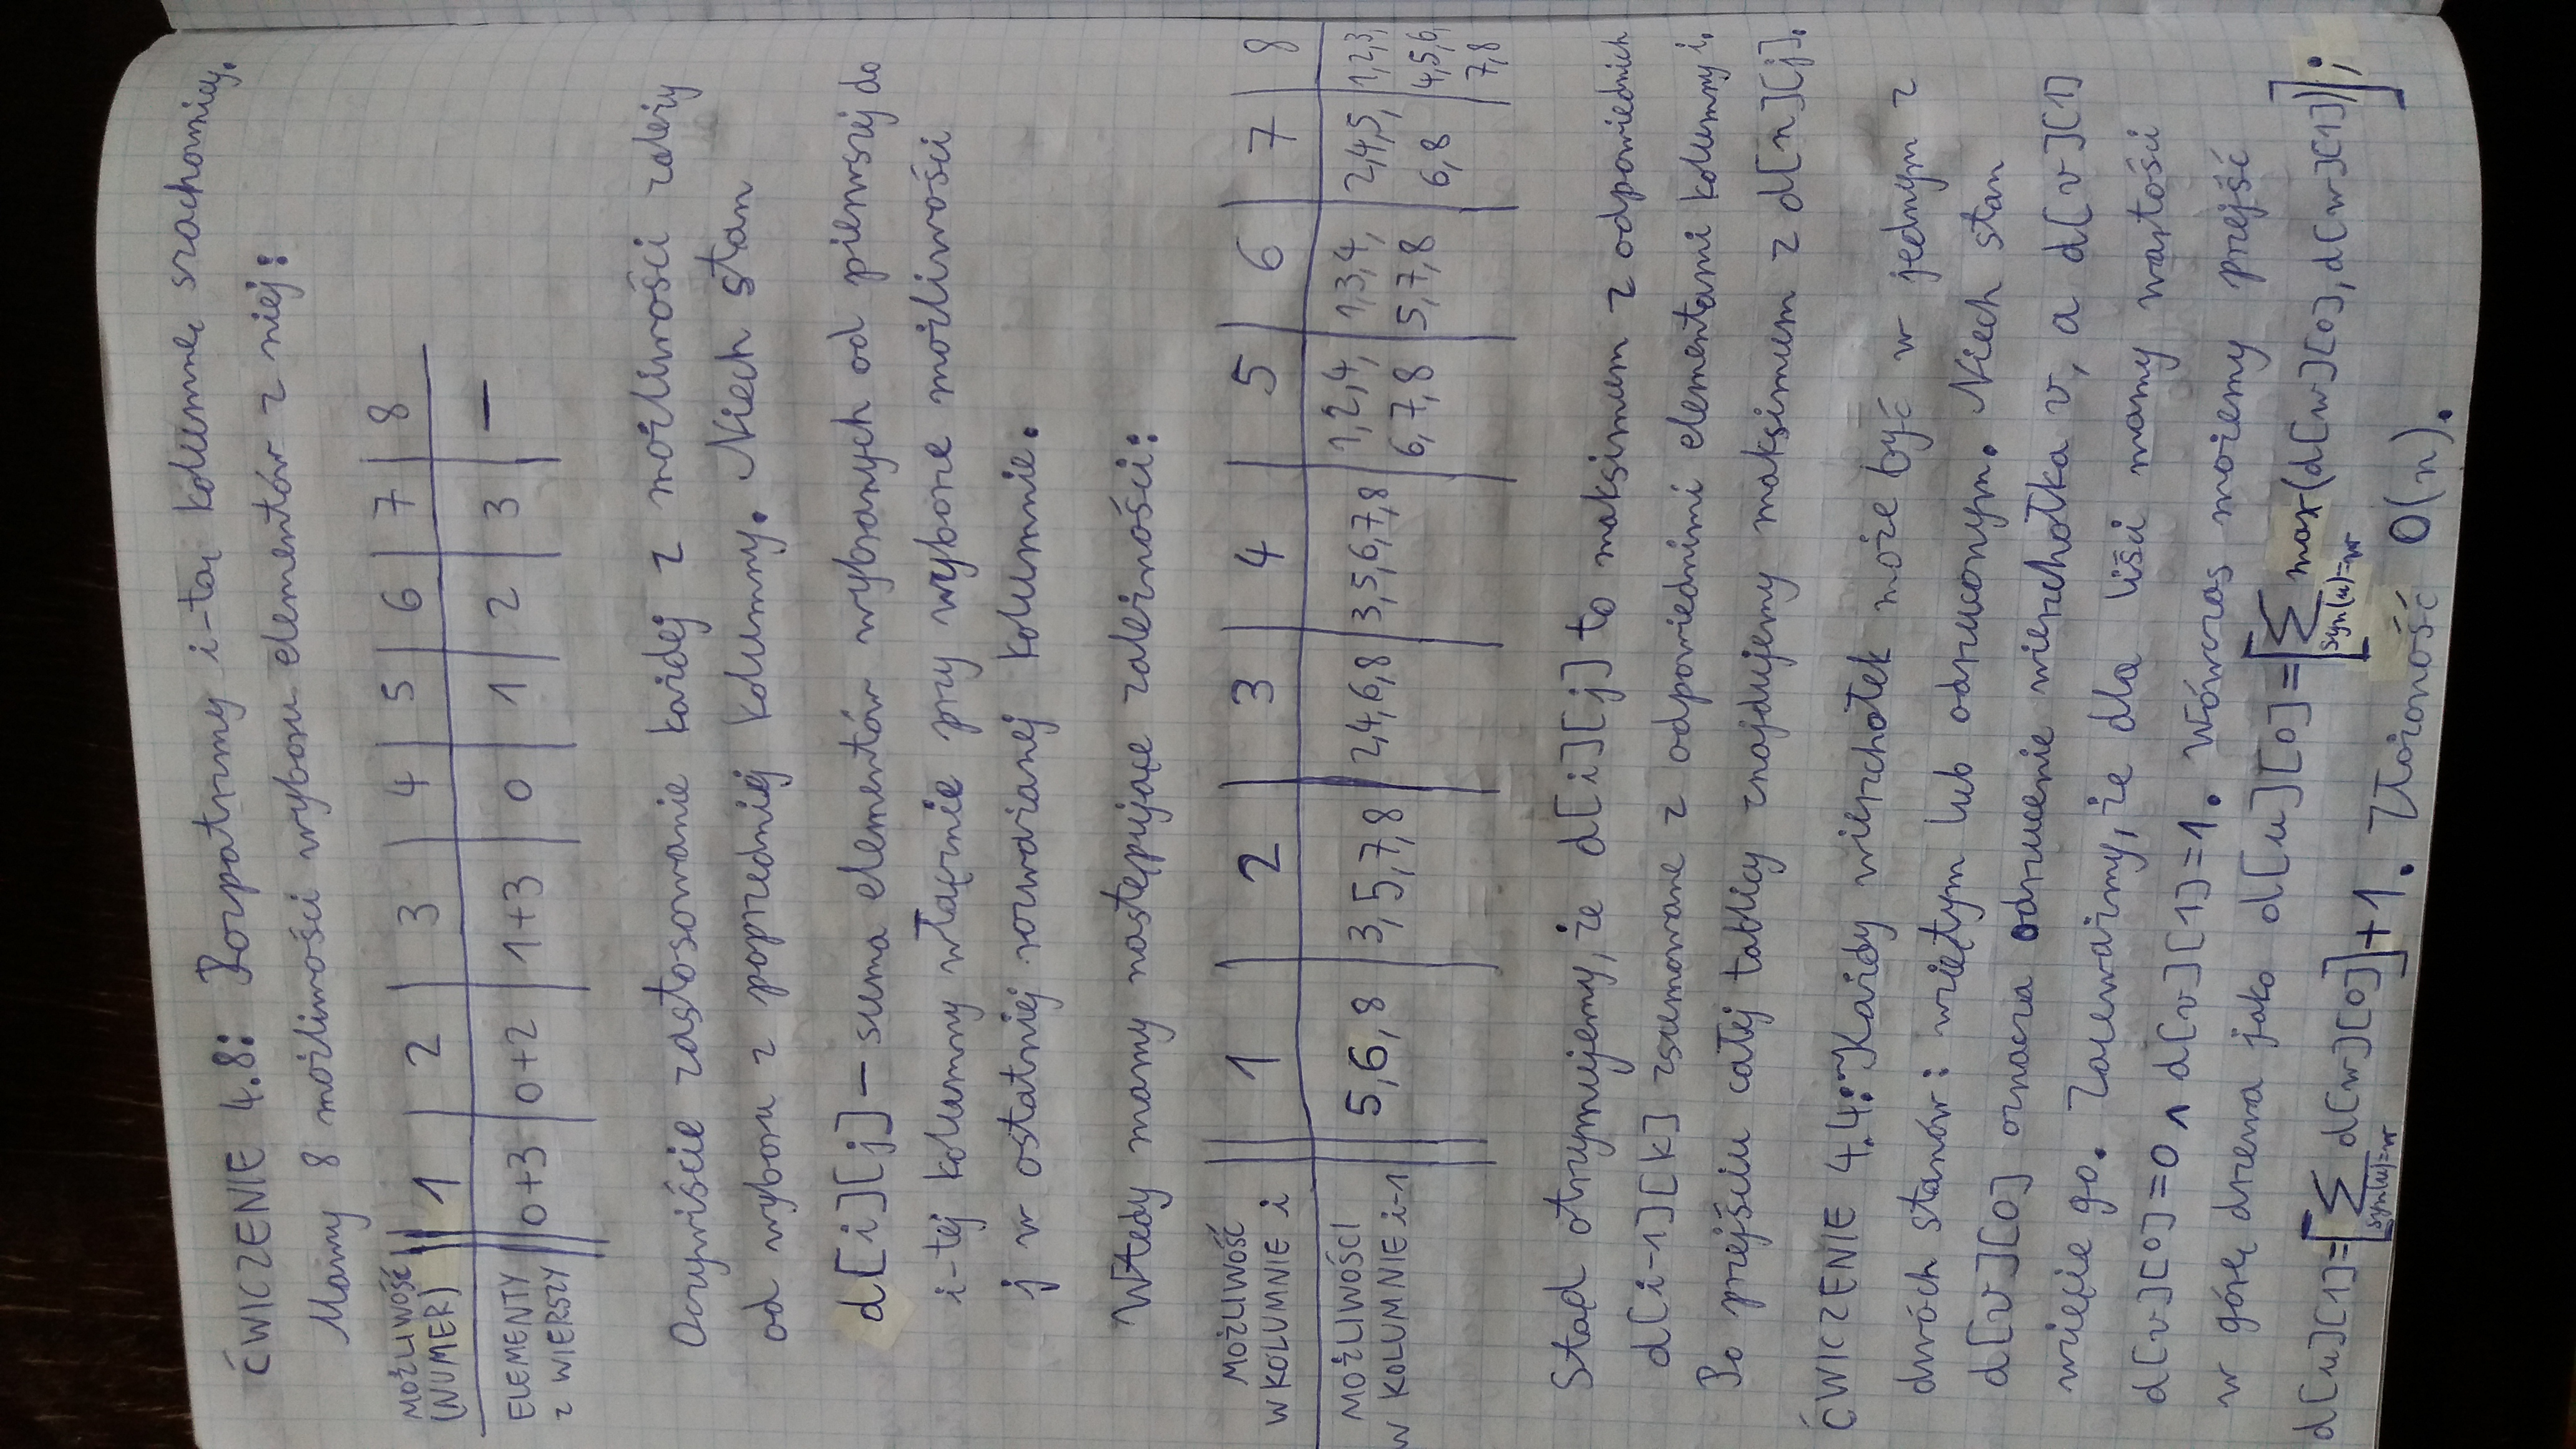 ĆWICZENIE 4.8: Rozpatrzmy i-tą kolumnę szachownicy.
Mamy 8 możliwości wyboru elementów z niej:
MOŻLIWOŚĆ (NUMER) 1 2 3 4 5 6 7 8
ELEMENTY Z WIERSZY 0+3 0+2 1+3 0 1 2 3 —
Oczywiście zastosowanie każdej z możliwości zależy
od wyboru z poprzedniej kolumny. Niech stan
d[i][j] – suma elementów wybranych od pierwszej do
i-tej kolumny włącznie przy wyborze możliwości
j w ostatniej rozważanej kolumnie.
Wtedy mamy następujące zależności:
MOŻLIWOŚĆ W KOLUMNIE i 1 2 3 4 5 6 7 8
MOŻLIWOŚCI W KOLUMNIE i-1 5,6,8 3,5,7,8 2,4,6,8 3,5,6,7,8 1,2,4,6,7,8 1,3,4,5,7,8 2,4,5,6,8 1,2,3,4,5,6,7,8
Stąd otrzymujemy, że d[i][j] to maksimum z odpowiednich
d[i-1][k] zsumowane z odpowiednimi elementami kolumny i.
Po przejściu całej tablicy znajdujemy maksimum z d[n][j].
ĆWICZENIE 4.4: Każdy wierzchołek może być w jednym z
dwóch stanów: wziętym lub odrzuconym. Niech stan
d[v][0] oznacza odrzucenie wierzchołka v, a d[v][1]
wzięcie go. Zauważmy, że dla liści mamy wartości
d[v][0]=0 ∧ d[v][1]=1. Wówczas możemy przejść
w górę drzewa jako d[u][0]=[∑ syn(u)=w max(d[w][0], d[w][1])];
d[u][1]=[∑ syn(u)=w d[w][0]]+1. Złożoność O(n).